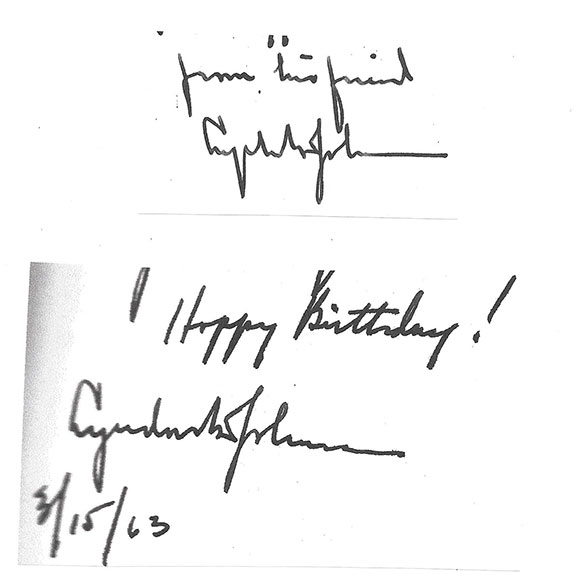 from his friend
Lyndon B Johnson
Happy Birthday!
Lyndon B Johnson
3/15/63